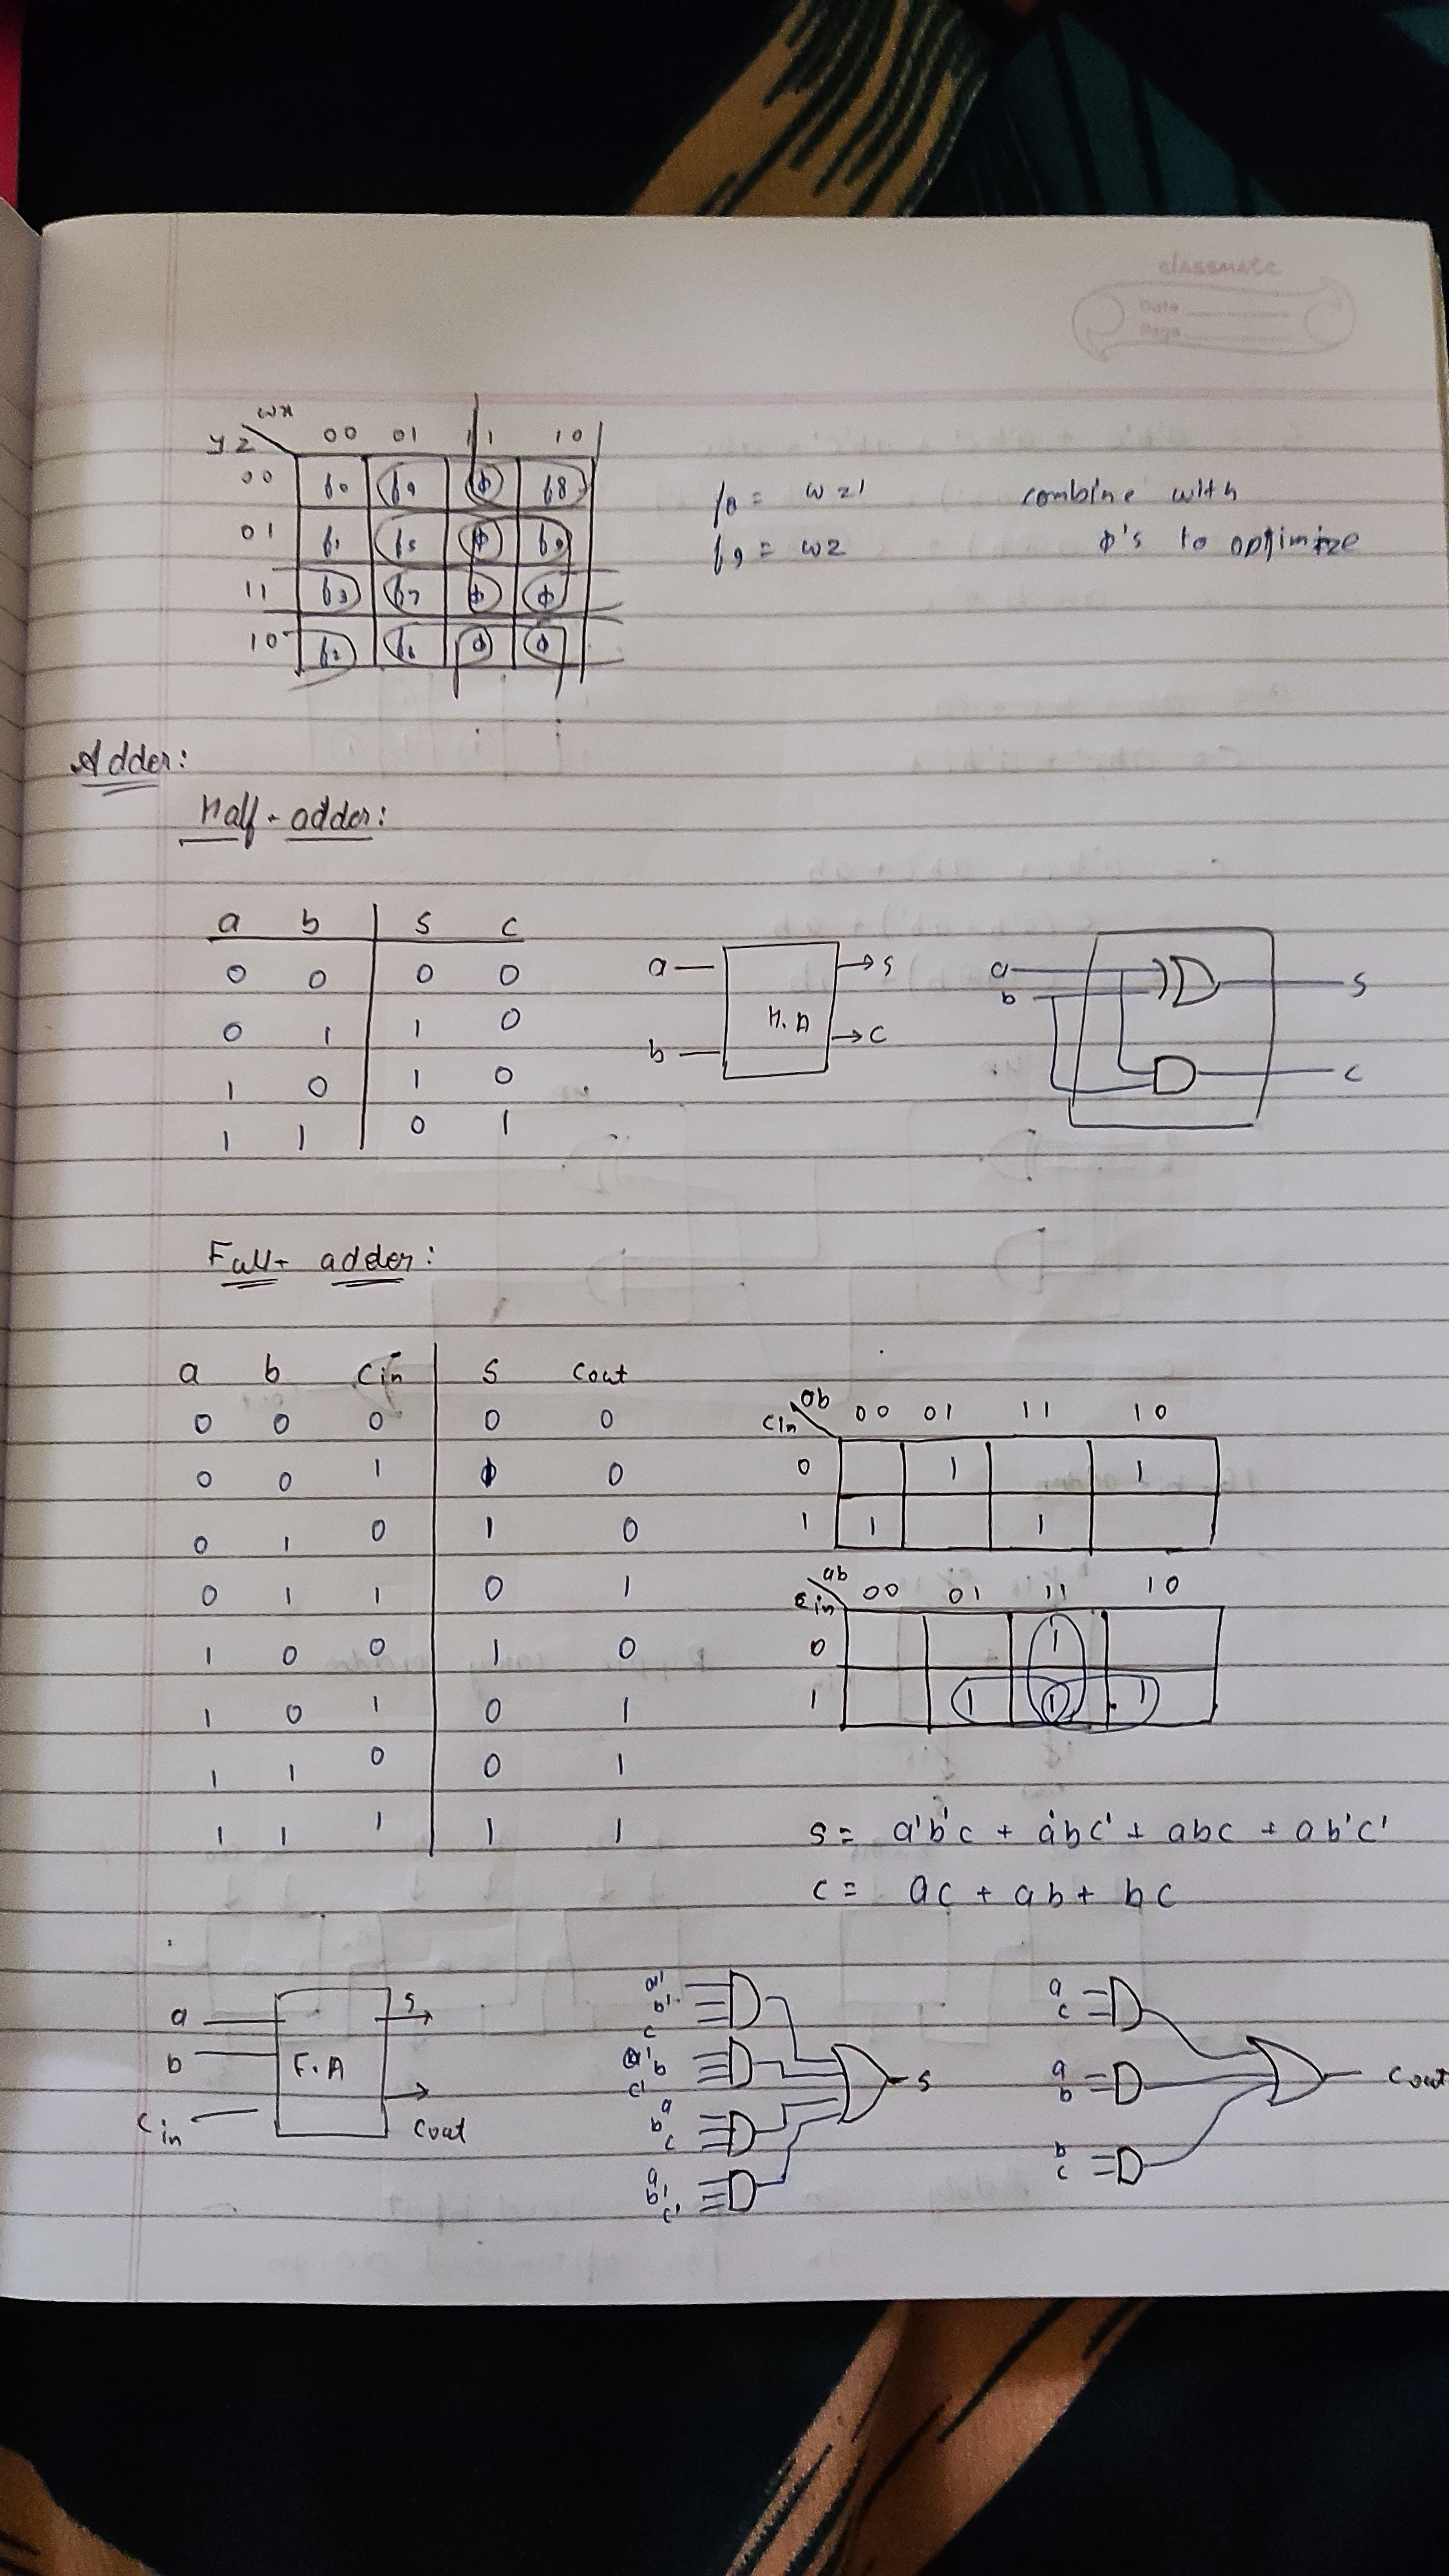 classmate
Date
Page
wx
yz 00 01 11 10
00 f0 f4 φ f8
01 f1 f5 φ f9
11 f3 f7 φ φ
10 f2 f6 φ φ
f8 = wz'
f9 = wz
combine with
φ's to optimize
Adder:
Half-adder:
a b s c
0 0 0 0
0 1 1 0
1 0 1 0
1 1 0 1
a b H.A s c
a b s c
Full-adder:
a b Cin s Cout
0 0 0 0 0
0 0 1 1 0
0 1 0 1 0
0 1 1 0 1
1 0 0 1 0
1 0 1 0 1
1 1 0 0 1
1 1 1 1 1
ab
Cin 00 01 11 10
0 1 1
1 1 1
ab
Cin 00 01 11 10
0 1
1 1 1 1
s = a'b'c + a'bc' + abc + ab'c'
c = ac + ab + bc
a b Cin F.A s Cout
a' b' c
a' b c'
a b c
a b' c'
s
a c
a b
b c
Cout